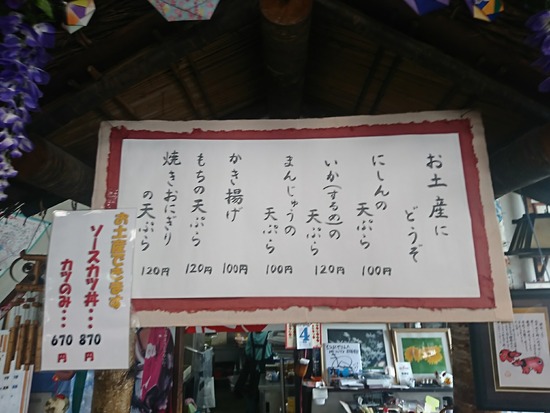 お土産に
どうぞ
にしんの
天ぷら
100円
いか(するめ)の
天ぷら
120円
まんじゅうの
天ぷら
100円
かき揚げ
100円
もちの天ぷら
120円
焼きおにぎり
の天ぷら
120円
ソースカツ丼・・・
870円
カツのみ・・・
670円
4